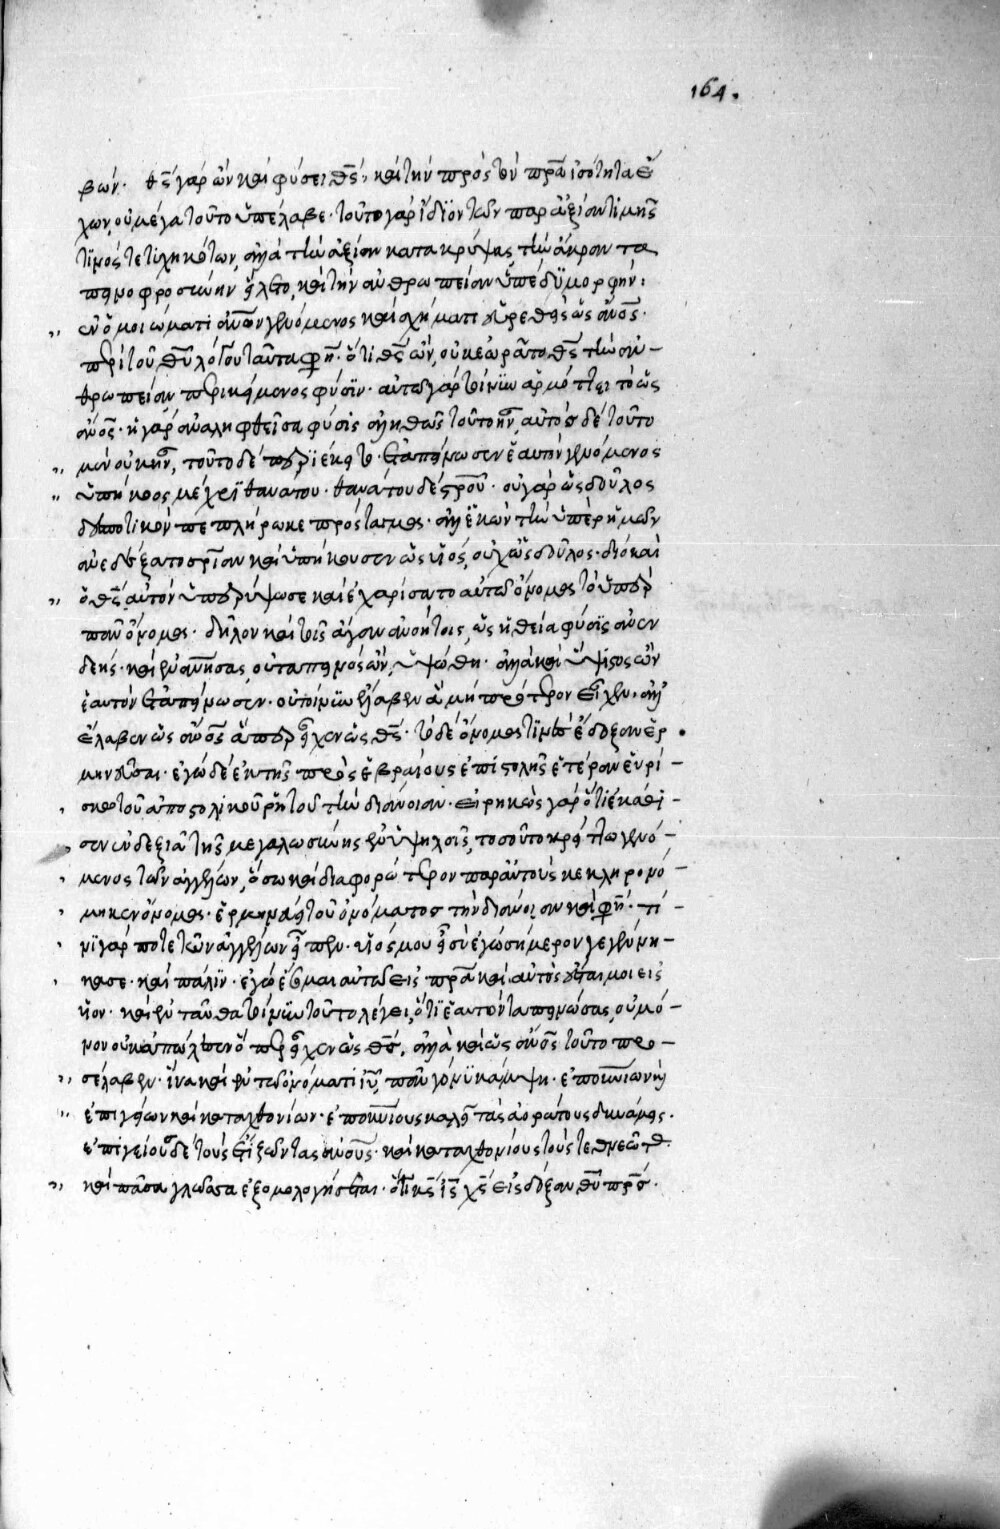 164.
βών. θς γαρ ὢν καὶ φύσει θς, καὶ τὴν πρὸς τὸν πρα ἰσότητα ἔ
χων, οὐ μέγα τοῦτο ὑπέλαβε. τοῦτο γὰρ ἴδιον τῶν παρ' ἀξίαν τιμῆς
τινὸς τετυχηκότων, ἀλλὰ τὴν ἀξίαν κατακρύψας τὴν ἄκραν τα
πεινοφροσύνην εἵλετο, καὶ τὴν ἀνθρωπείαν ὑπέδυ μορφήν.
ἐν ὁμοιώματι ἀνων γενόμενος καὶ σχήματι εὑρεθεὶς ὡς ἄνος.
περὶ τοῦ θυ λόγου ταῦτα φη. ὅτι θς ὢν, οὐκ ἑωρᾶτο θς τὴν ἀν-
θρωπείαν περικείμενος φύσιν. αὐτῷ γὰρ τοίνυν ἁρμόττει τὸ ὡς
ἄνος. ἡ γὰρ ἀναληφθεῖσα φύσις ἀληθῶς τοῦτο ἦν, αὐτὸς δὲ τοῦτο
μὲν οὐκ ἦν, τοῦτο δὲ περιέκειτο. ἐταπείνωσεν ἑαυτὸν γενόμενος
ὑπήκοος μέχρι θανάτου. θανάτου δὲ σρου. οὐ γὰρ ὡς δοῦλος
δεσποτικὸν πεπλήρωκε πρόσταγμα. ἀλλ' ἑκὼν τὴν ὑπὲρ ἡμῶν
ἀνεδέξατο σριαν καὶ ὑπήκουσεν ὡς υἱός, οὐχ ὡς δοῦλος. διὸ καὶ
ὁ θς αὐτὸν ὑπερύψωσε καὶ ἐχαρίσατο αὐτῷ ὄνομα τὸ ὑπὲρ
πᾶν ὄνομα. δῆλον καὶ τοῖς ἄγαν ἀνοήτοις, ὡς ἡ θεία φύσις ἀνεν
δεής. καὶ ἐνανήσας, οὐ ταπεινὸς ὢν, ὑψώθη. ἀλλὰ καὶ ὕψιστος ὢν
ἑαυτὸν ἐταπείνωσεν. οὐ τοίνυν ἔλαβεν ἃ μὴ πρότερον εἶχεν. ἀλλ'
ἔλαβεν ὡς ἄνος ἅπερ εἶχεν ὡς θς. τὸ δὲ ὄνομά τινες ἐδόξαν ἑρ
μηνεῦσαι. ἐγὼ δὲ ἐκ τῆς πρὸς ἑβραίους ἐπιστολῆς ἑτέραν εὑρί-
σκω τοῦ ἀποστολικοῦ ῥητοῦ τὴν διάνοιαν. εἰρηκὼς γὰρ ὅτι ἐκάθι-
σεν ἐν δεξιᾷ τῆς μεγαλωσύνης ἐν ὑψηλοῖς, τοσοῦτο κρείττων γενό-
μενος τῶν ἀγγέλων, ὅσω καὶ διαφορώτερον παρ' αὐτοὺς κεκληρονό-
μηκεν ὄνομα. ἑρμηνεύει τοῦ ὀνόματος τὴν διάνοιαν καὶ φη. τί-
νι γάρ ποτε τῶν ἀγγέλων εἶπεν. υἱός μου εἶ σὺ ἐγὼ σήμερον γεγένη-
κά σε. καὶ πάλιν. ἐγὼ ἔσομαι αὐτῷ εἰς πρα καὶ αὐτὸς ἔσται μοι εἰς
υἱόν. καὶ ἐνταῦθα τοίνυν τοῦτο λέγει, ὅτι ἑαυτὸν ταπεινώσας, οὐ μό-
νον οὐκ ἀπώλεσεν ὅπερ εἶχεν ὡς θς, ἀλλὰ καὶ ὡς ἄνος τοῦτο προ-
σέλαβεν. ἵνα καὶ ἐν τῷ ὀνόματι ιυ, πᾶν γόνυ κάμψη. ἐπουνίων καὶ
ἐπιγείων καὶ καταχθονίων. ἐπουνίους καλεῖ τὰς ἀοράτους δυνάμεις.
ἐπιγείους δὲ τοὺς ἔτι ζῶντας ἀνους. καὶ καταχθονίους τοὺς τεθνεῶτας.
καὶ πᾶσα γλῶσσα ἐξομολογήσεται. ὅτι κς ις χς εἰς δόξαν θυ πρς.